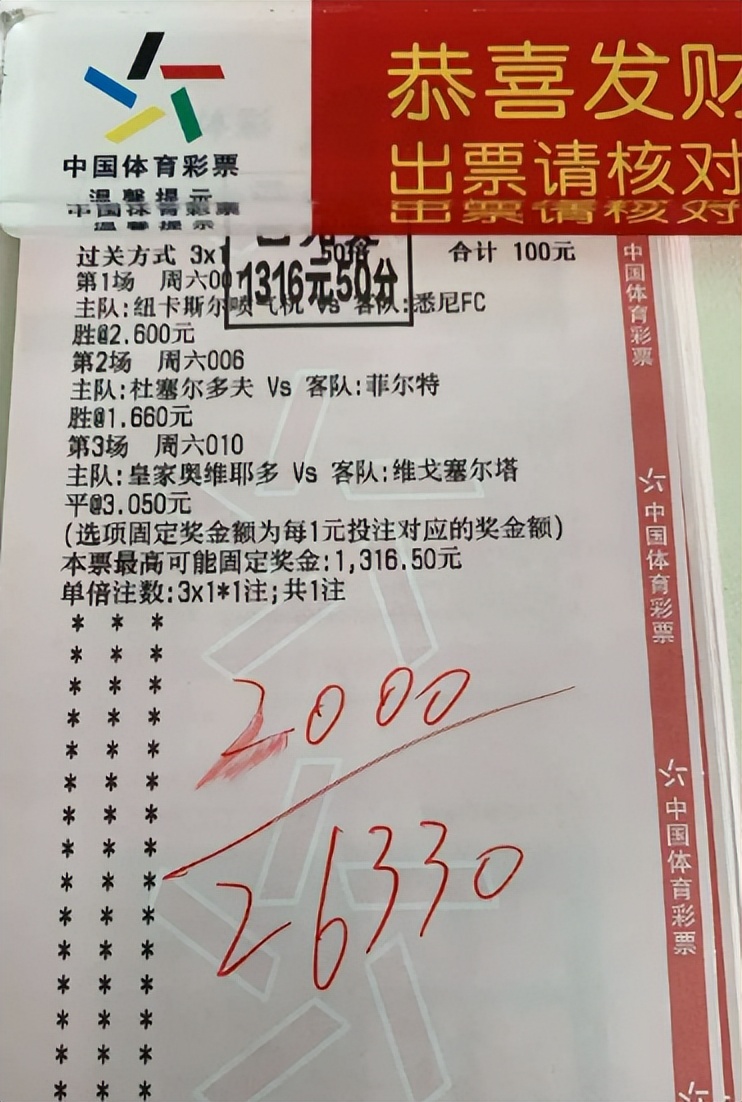 恭喜发财
出票请核对
中国体育彩票
温馨提示
过关方式 3x1 50倍 合计 100元
1316元50分
第1场 周六00
主队:纽卡斯尔喷气机 Vs 客队:悉尼FC
胜@2.600元
第2场 周六006
主队:杜塞尔多夫 Vs 客队:菲尔特
胜@1.660元
第3场 周六010
主队:皇家奥维耶多 Vs 客队:维戈塞尔塔
平@3.050元
(选项固定奖金额为每1元投注对应的奖金额)
本票最高可能固定奖金:1,316.50元
单倍注数:3x1*1注;共1注
2000
26330
中国体育彩票
中国体育彩票
中国体育彩票